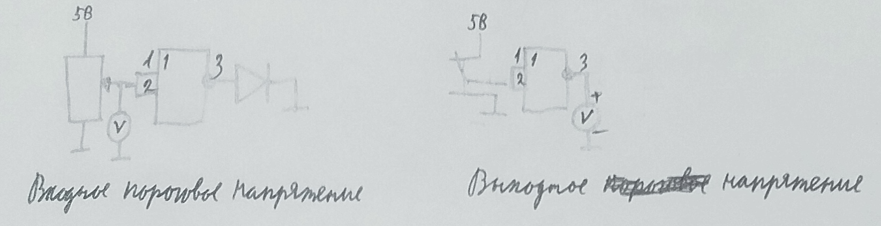 5В
1 1 3
2
V
Входное пороговое напряжение
5В
1 1 3
2
+
V
–
Выходное напряжение